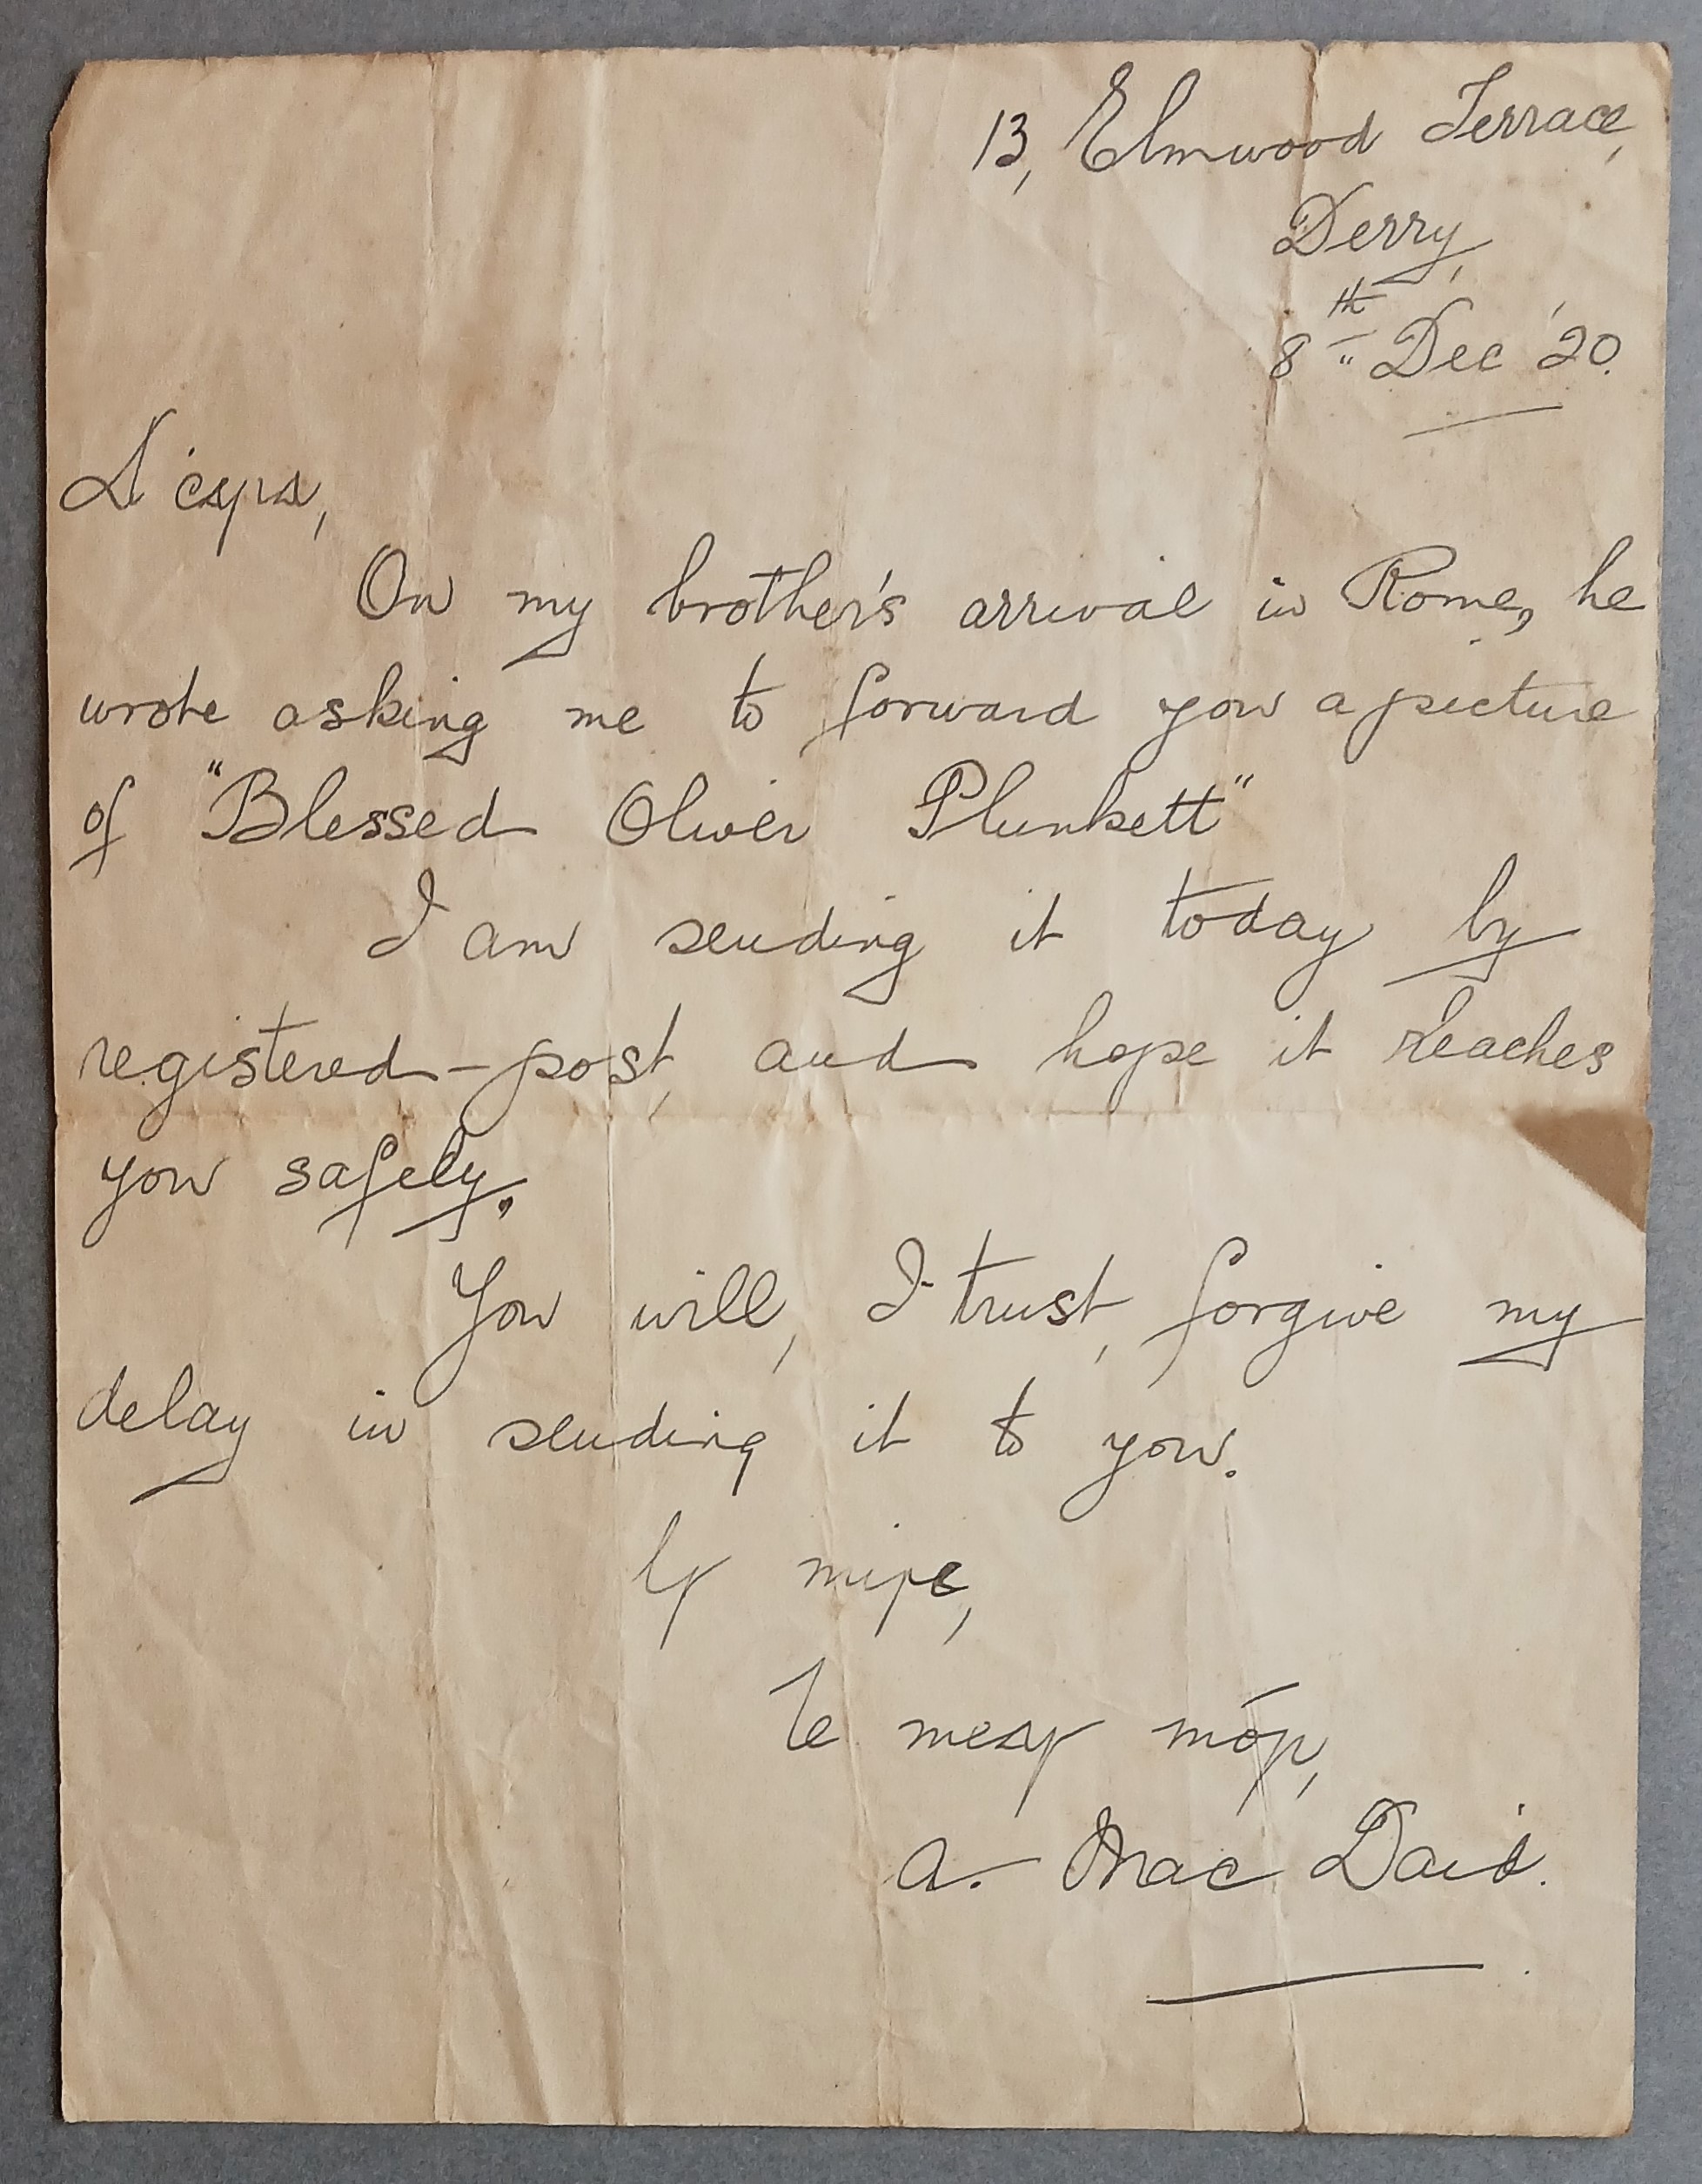 13, Elmwood Terrace,
Derry,
8th Dec '20.
A ċara,
On my brother's arrival in Rome, he
wrote asking me to forward you a picture
of "Blessed Oliver Plunkett"
I am sending it today by
registered-post, and hope it reaches
you safely.
You will, I trust, forgive my
delay in sending it to you.
Is mise,
le meas mór,
A. Mac Daiḋ.